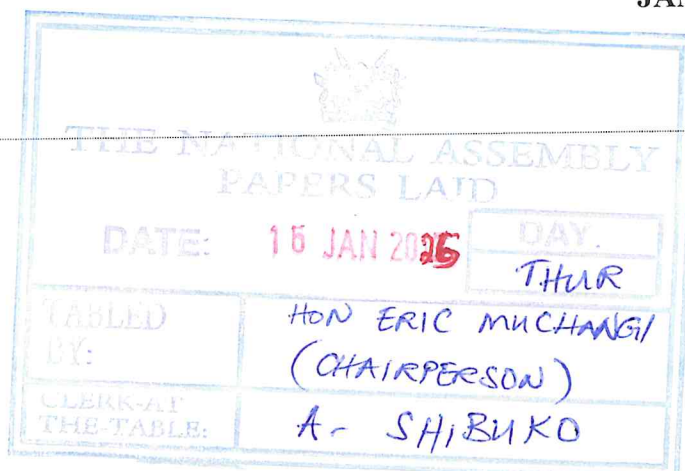 JAN
THE NATIONAL ASSEMBLY
PAPERS LAID
DATE: 16 JAN 2025 DAY.
THUR
TABLED BY: HON ERIC MUCHANGI
(CHAIRPERSON)
CLERK-AT
THE-TABLE: A- SHIBUKO